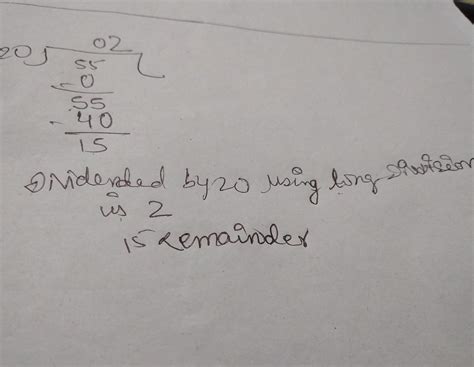 02
20) 55
- 0
55
- 40
15
Dividended by 20 using long Division
is 2
15 Remainder